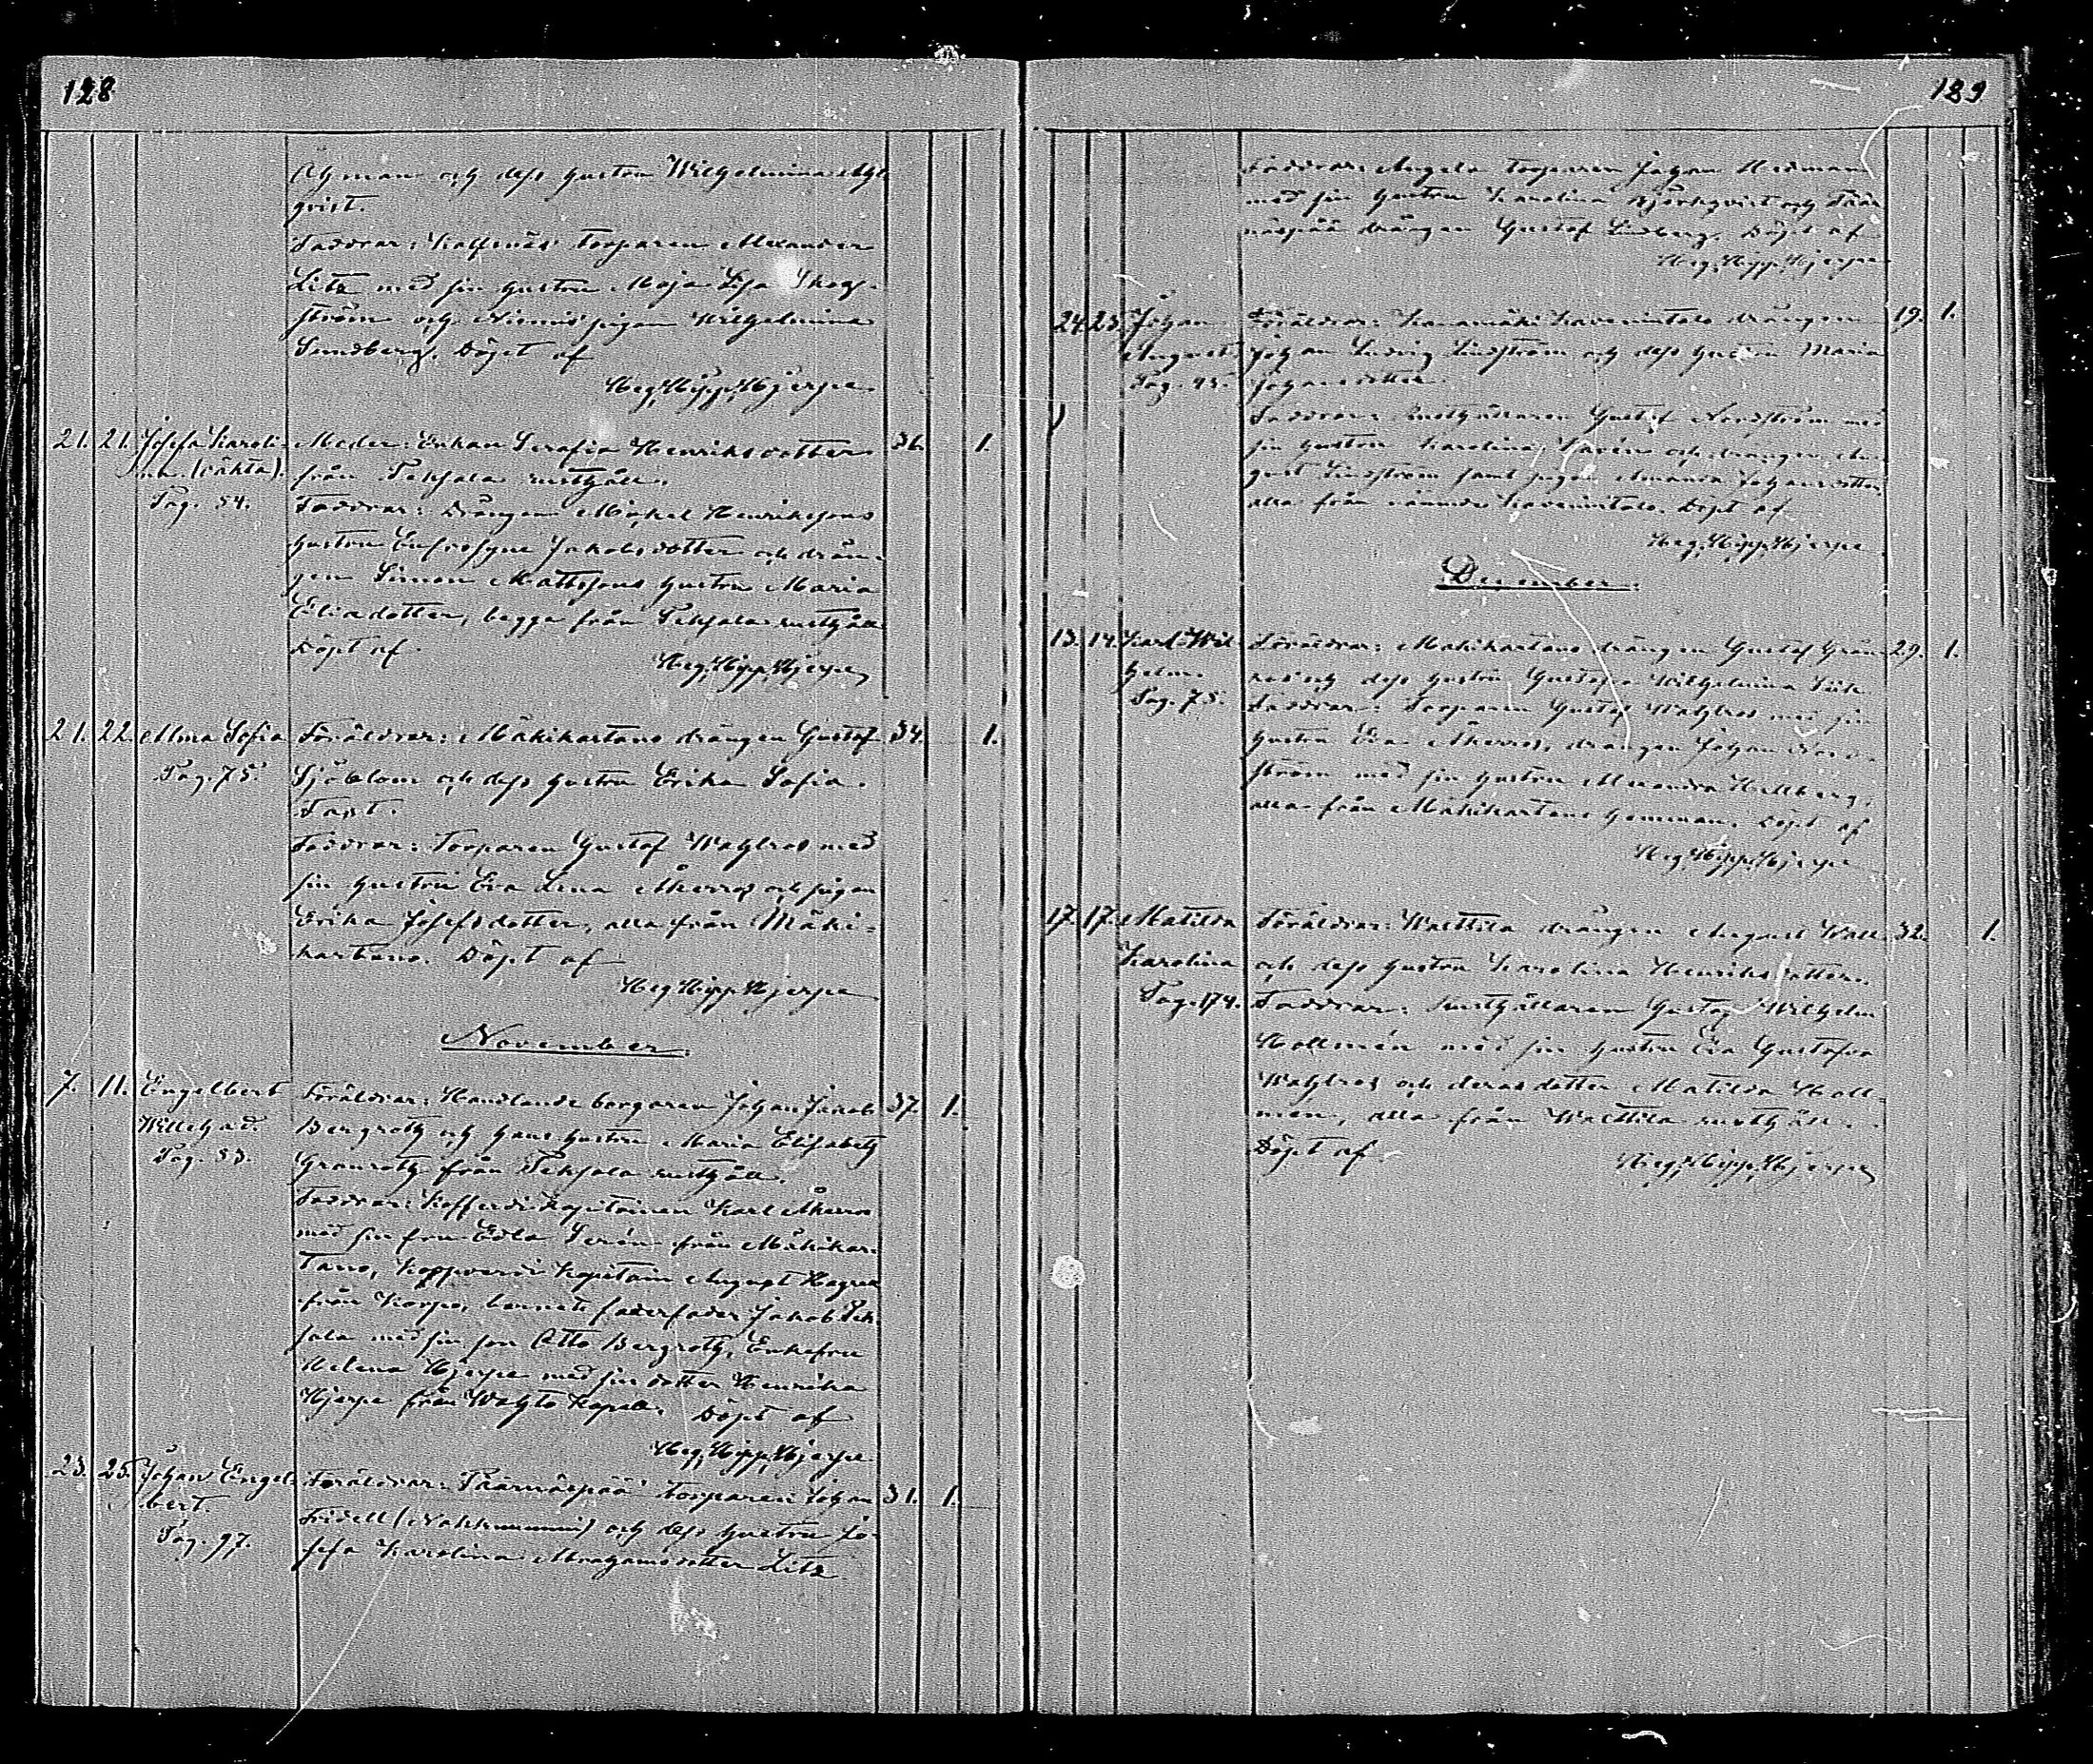 128
Öhman och dess hustru Wilhelmina Ahl
qvist.
Faddrar: torparen Alexander
Litz med sin hustru Maja Lisa Skog-
ström och Niemis pigan Wilhelmina
Sundberg. Döpt af
Heg. Hipp. Hjerpe
21. 21. Josefa Karoli- Moder: Enkan Serafia Henriksdotter 36. 1.
na. (oäkta). från Tekhala rusthåll.
Pag. 54. Faddrar: Drängen Mickel Henrikssons
hustru Eufrosyne Jakobsdotter och drän-
gen Simon Mattssons hustru Maria
Eliadotter, begge från Tekhala rusthåll
Döpt af
Heg. Hipp. Hjerpe
21. 22. Alma Sofia Föräldrar: Mäkikartano drängen Gustaf 34. 1.
Pag. 75. Sjöblom och dess hustru Erika Sofia
Fast.
Faddrar: Torparen Gustaf Wahlros med
sin hustru Eva Lena Åkerros och pigan
Erika Josefsdotter, alla från Mäki-
kartano. Döpt af
Heg. Hipp. Hjerpe
November.
7. 11. Engelbert Föräldrar: Handlande borgaren Johan Jakob 37. 1.
Willehad. Bergroth och hans hustru Maria Elisabeth
Pag. 53. Granroth från Tekhala rusthåll.
Faddrar: Kofferdi Kapitainen Karl Åkerros
med sin fru Edla Serén från Mäkikar-
tano, Koppverdi Kapitain August Hagren
från Korpo, barnets faderfader Jakob Tek-
hala med sin son Otto Bergroth, Enkefru
Helena Hjerpe med sin dotter Henrika
Hjerpe från Wahto Kapell. Döpt af
Heg. Hipp. Hjerpe
23. 25. Johan Engel- Föräldrar: Päärnäspää torparen Johan 31. 1.
bert. Fridell (Nahkanummi) och dess hustru Jo-
Pag. 97. sefa Karolina Abrahamsdotter Litz
129
Faddrar: Angela torparen Johan Hedman
med sin hustru Karolina Björkqvist och Päär
näspää drängen Gustaf Lindberg. Döpt af
Heg. Hipp. Hjerpe
24. 25. Johan Föräldrar: Kanamäki Kavenintalo drängen 19. 1.
August Johan Ludvig Lindström och dess hustru Maria
Pag. 45. Johansdotter.
Faddrar: Rusthållaren Gustaf Nordström med
sin hustru Karolina Kavén och drängen Au-
gust Lindström samt pigan Amanda Johansdotter,
alla från nämnde Kavenintalo. Döpt af
Heg. Hipp. Hjerpe
December.
13. 14. Karl Wil- Föräldrar: Mäkikartano drängen Gustaf Grön 29. 1.
helm. roos och dess hustru Gustafva Wilhelmina
Pag. 75. Faddrar: Torparen Gustaf Wahlros med sin
hustru Eva Åkerros, drängen Johan
ström med sin hustru Alexandra Hellberg,
alla från Mäkikartano hemman. Döpt af
Heg. Hipp. Hjerpe
17. 17. Matilda Föräldrar: Walttila drängen August Wall 32. 1.
Karolina och dess hustru Karolina Henriksdotter.
Pag. 174. Faddrar: Rusthållaren Gustaf Wilhelm
Hollmén med sin hustru Eva Gustafva
Wahlros och deras dotter Matilda Holl-
mén, alla från Walttila rusthåll.
Döpt af
Heg. Hipp. Hjerpe